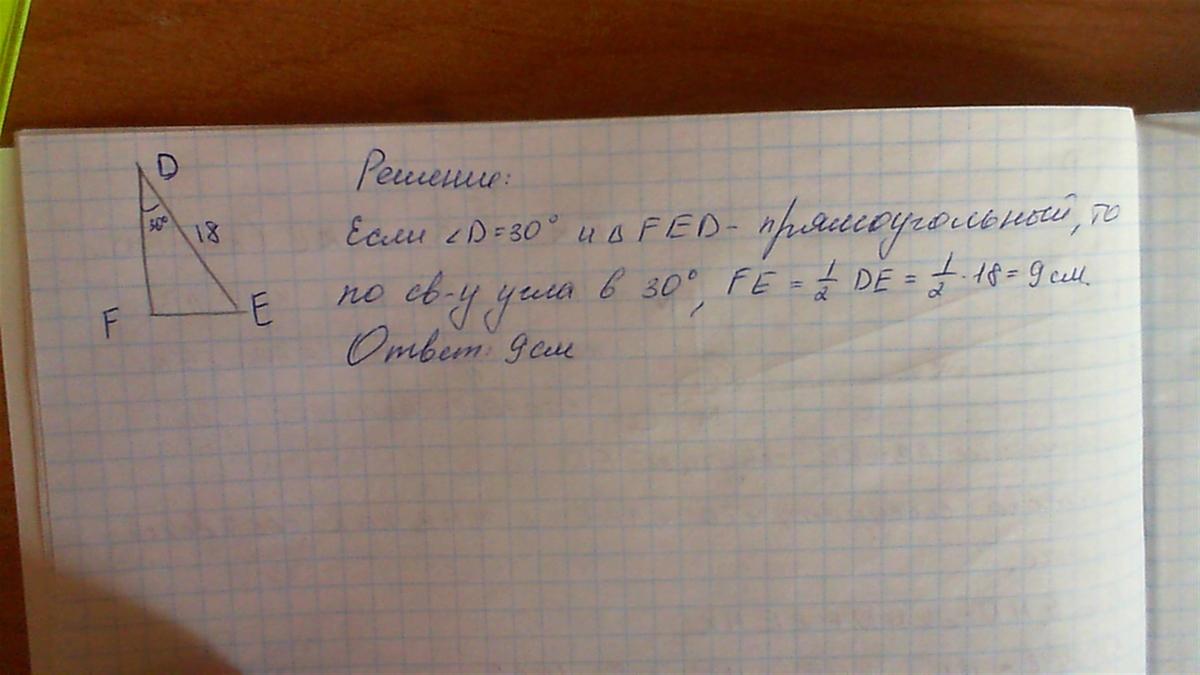 D
30°
18
F
E
Решение:
Если ∠D=30° и △FED- прямоугольный, то
по св-у угла в 30°, FE = 1/2 DE = 1/2 · 18 = 9см.
Ответ: 9см